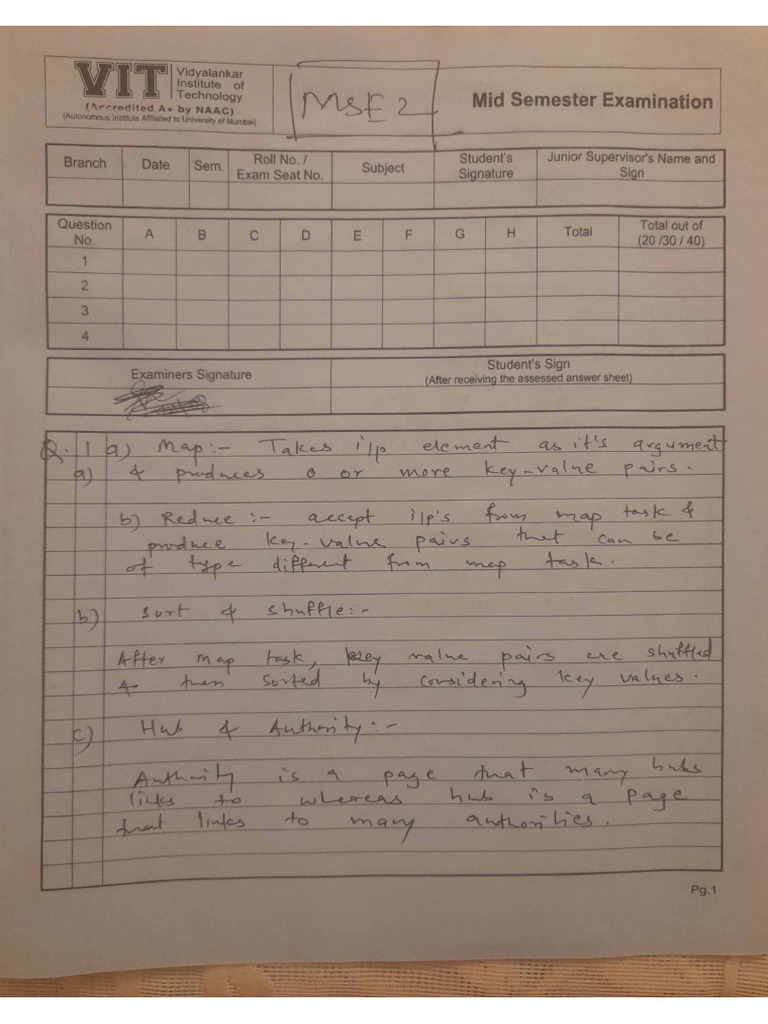 VIT
Vidyalankar
Institute of
Technology
(Accredited A+ by NAAC)
(Autonomous Institute Affiliated to University of Mumbai)
MSE 2
Mid Semester Examination
Branch Date Sem. Roll No. / Exam Seat No. Subject Student's Signature Junior Supervisor's Name and Sign
Question No. A B C D E F G H Total Total out of (20 /30 / 40)
1
2
3
4
Examiners Signature
Student's Sign
(After receiving the assessed answer sheet)
Q.1 a) Map:- Takes i/p element as it's argument
a) & produces 0 or more key-value pairs.
b) Reduce:- accept i/p's from map task &
produce key-value pairs that can be
of type different from map task.
b) Sort & Shuffle:-
After map task, key value pairs are shuffled
& then sorted by considering key values.
c) Hub & Authority:-
Authority is a page that many hubs
links to whereas hub is a page
that links to many authorities.
Pg.1